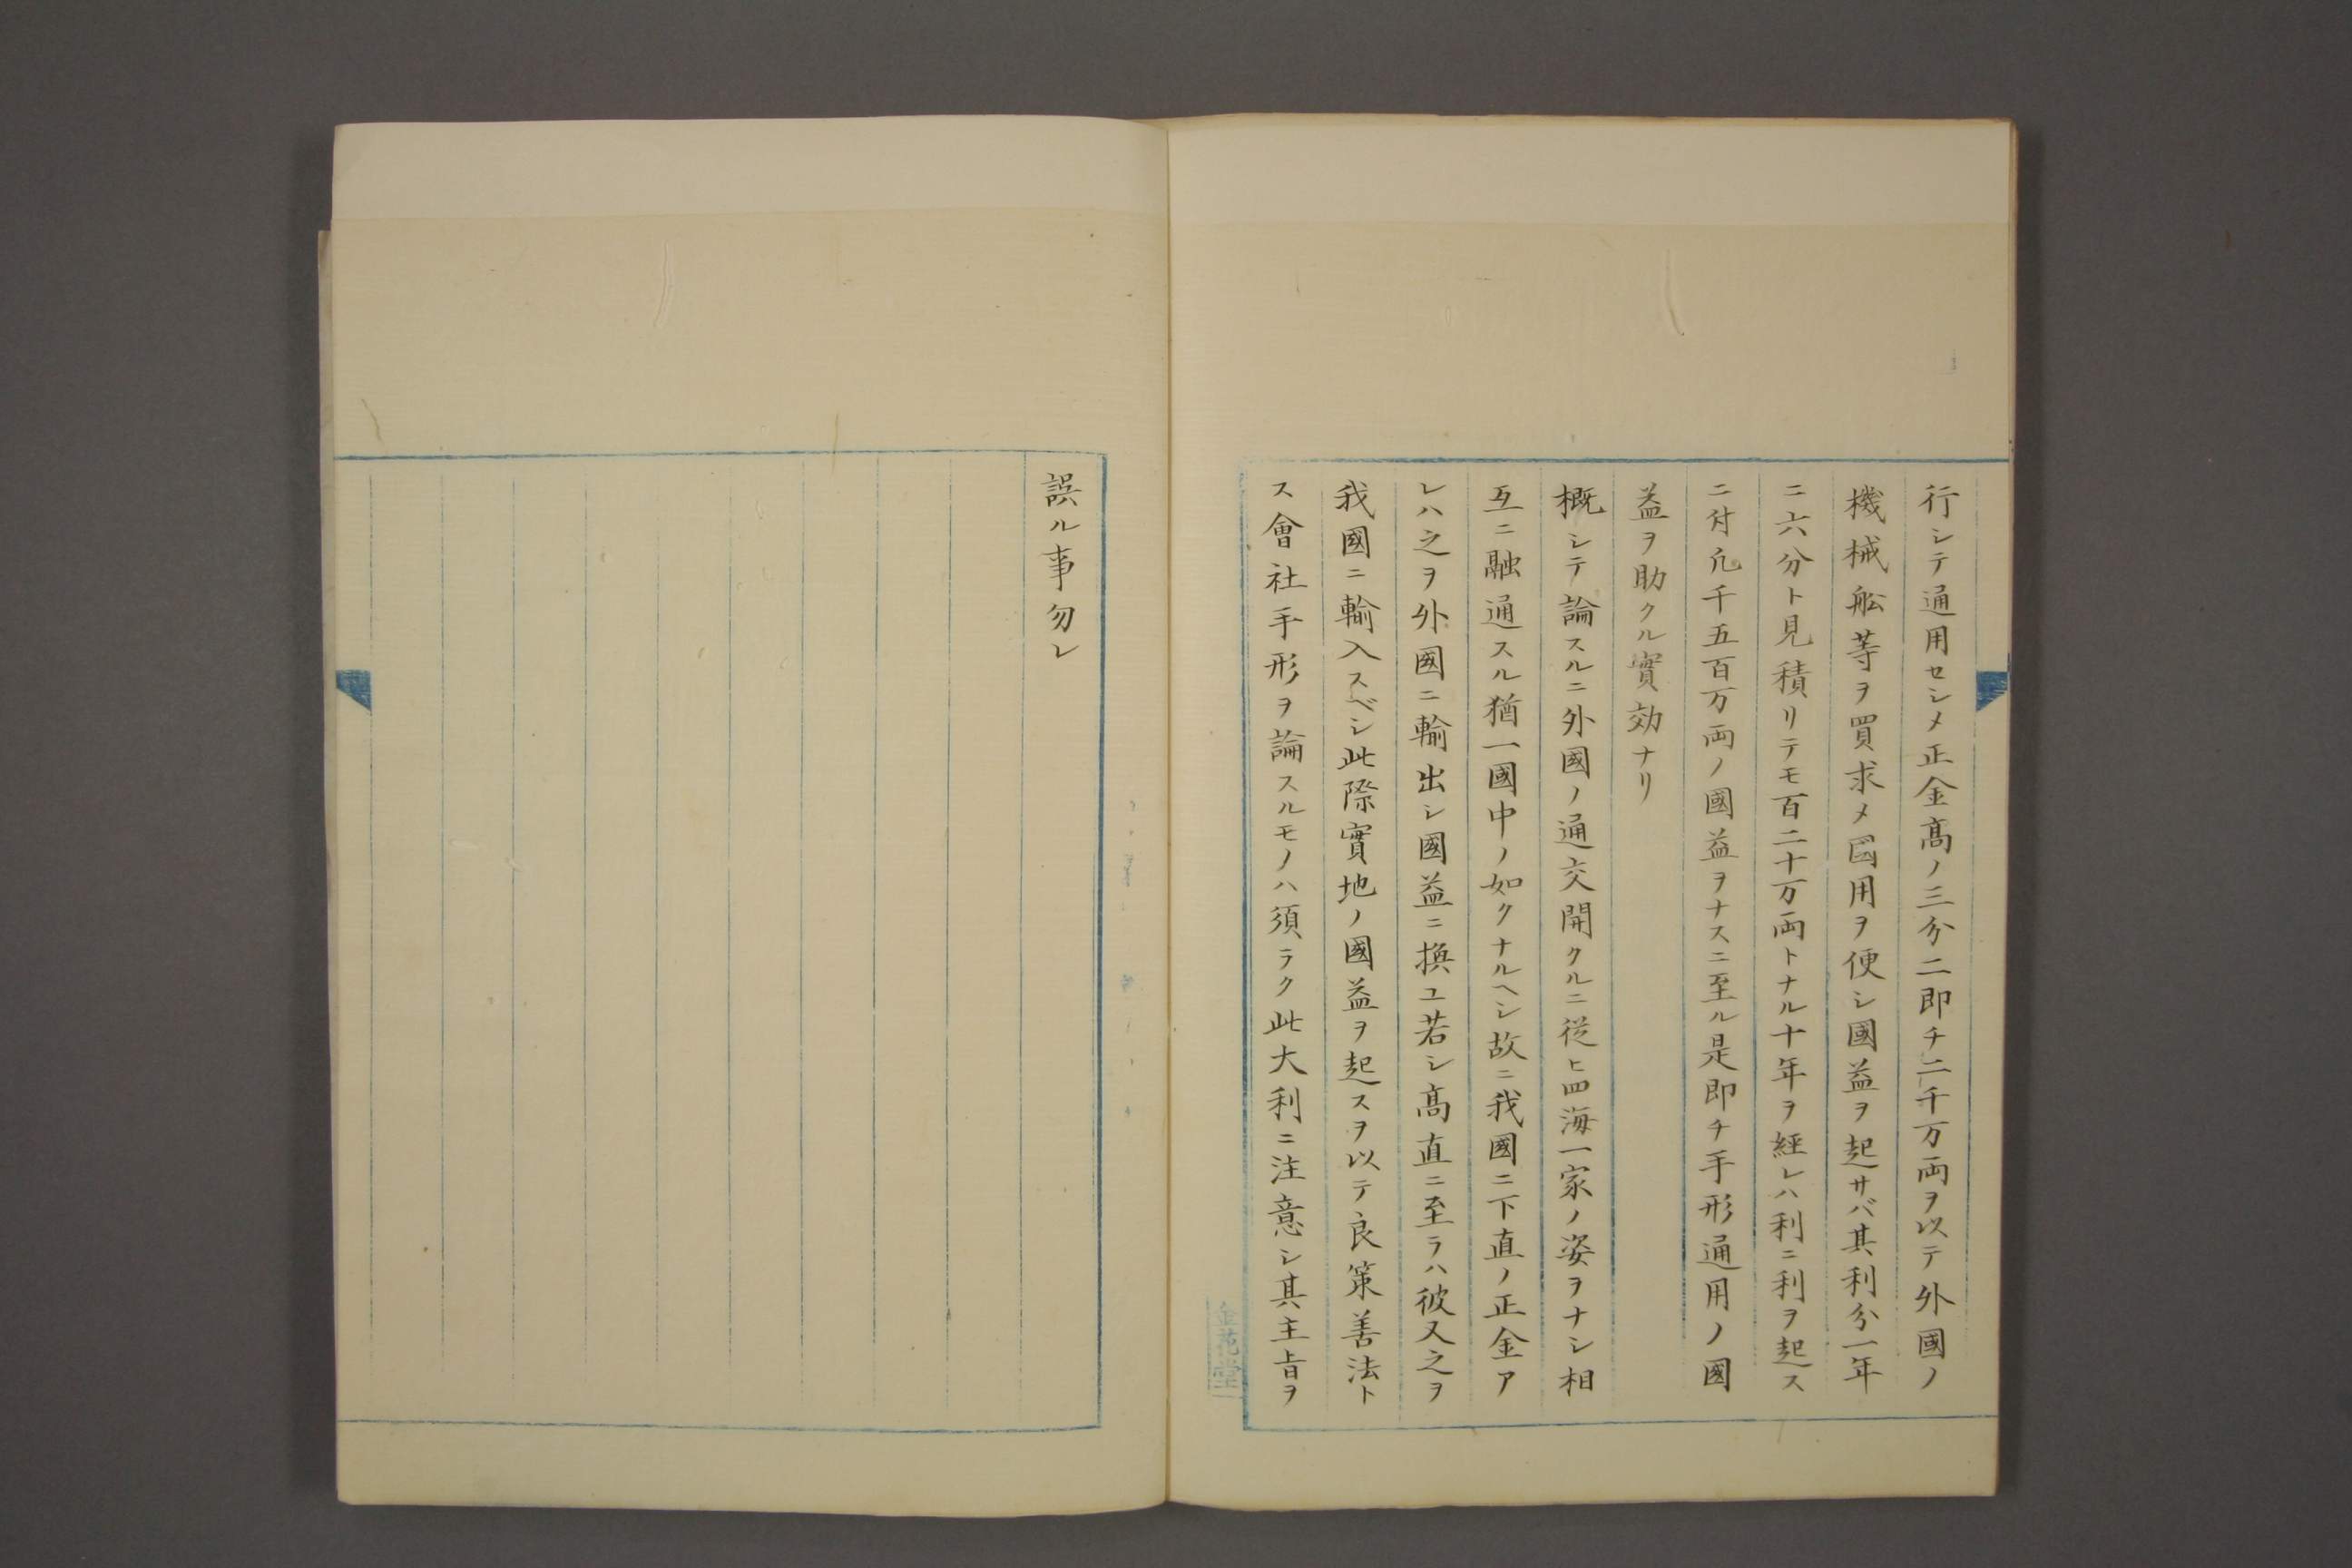 行シテ通用セシメ正金高ノ三分二即チ二千万両ヲ以テ外國ノ
機械舩等ヲ買求メ国用ヲ便シ國益ヲ起サバ其利分一年
ニ六分ト見積リテモ百二十万両トナル十年ヲ経レハ利ニ利ヲ起ス
ニ付凡千五百万両ノ國益ヲナスニ至ル是即チ手形通用ノ國
益ヲ助クル實効ナリ
概シテ論スルニ外國ノ通交開クルニ従ヒ四海一家ノ姿ヲナシ相
互ニ融通スル猶一國中ノ如クナルヘシ故ニ我國ニ下直ノ正金ア
レハ之ヲ外國ニ輸出シ國益ニ換ユ若シ高直ニ至ラハ彼又之ヲ
我國ニ輸入スベシ此際實地ノ國益ヲ起スヲ以テ良策善法ト
ス會社手形ヲ論スルモノハ須ラク此大利ニ注意シ其主旨ヲ
金花堂
誤ル事勿レ